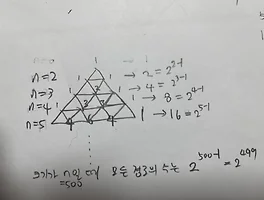 n=2 1 1 → 2 = 2^{2-1}
n=3 1 1 → 4 = 2^{3-1}
n=4 1 2 1 → 8 = 2^{4-1}
n=5 1 3 3 1
1 4 6 4 1 → 16 = 2^{5-1}
n일 때 모든 경로의 수는 2^{500-1} = 2^{499}
=500